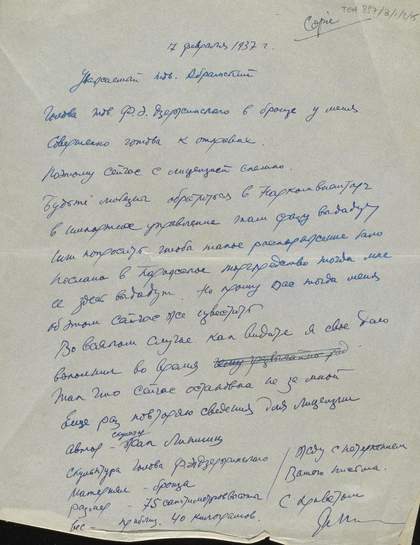 Copie
TGA 897/2/1/2/5
17 февраля 1937 г.
Уважаемый тов. Добраницкий
Голова тов Ф. Э. Дзержинского в бронце у меня
совершенно готова к отправке.
Поэтому сейчас с лицензией спешно.
Будьте любезны обратиться в Наркомвнешторг
в импортное управление там сразу выдадут
или попросите чтоба такое распоряжение было
послано в Парижское торгпредство тогда мне
ее здесь выдадут. Но прошу Вас тогда меня
об этом сейчас же известить
Во всяком случае как видите я свое дело
выполнил во время
Так что сейчас остановка не за мной
Еще раз повторяю сведения для лицензии
автор - скульптор Жак Липшиц
скульптура Голова Ф.Э.Дзержинского
материал - бронца
размер - 75 сантиметров высота
вес - приблиз. 40 килограмов.
Жду с нетерпением
Вашего письма.
С приветом